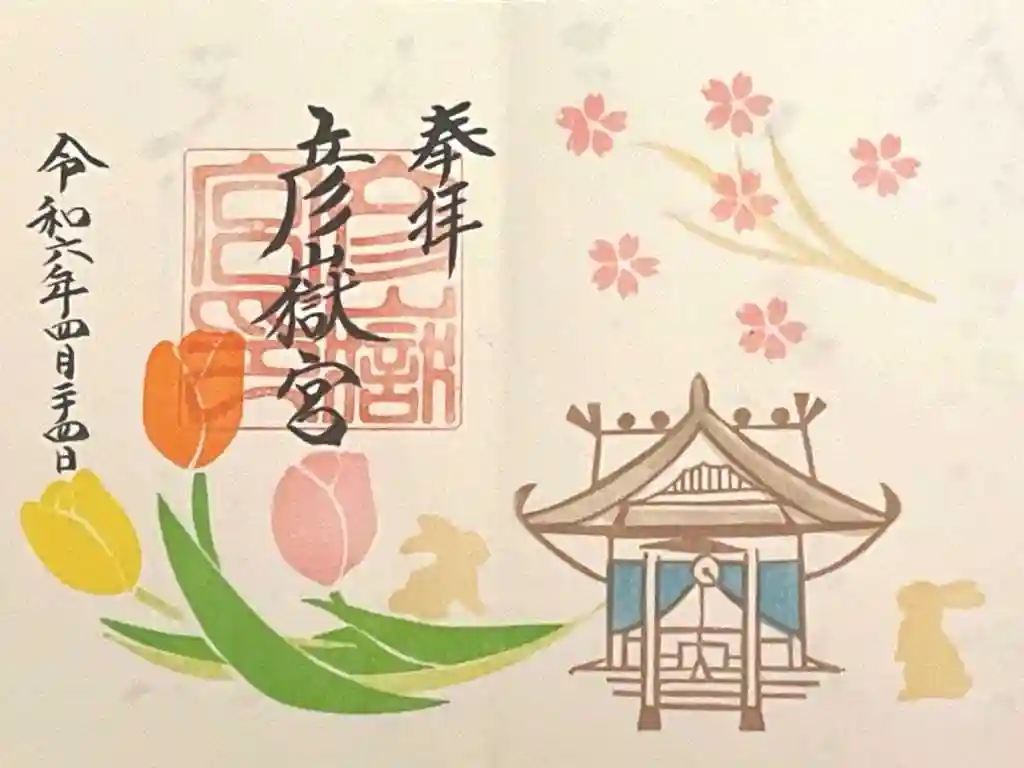 奉拝
彦嶽宮
彦嶽宮印
令和六年四月二十四日